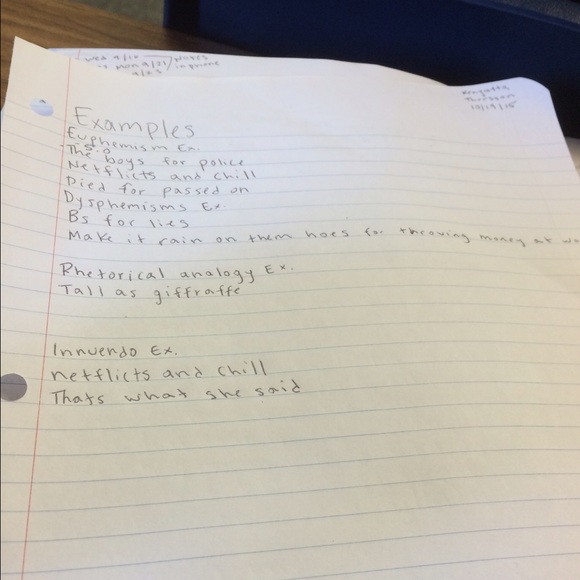 Notes
Examples
Euphemism Ex.
The boys for police
Netflicts and chill
Died for passed on
Dysphemisms Ex.
Bs for lies
Make it rain on them hoes for throwing money at
Rhetorical analogy Ex.
Tall as giffraffe
Innuendo Ex.
netflicts and chill
Thats what she said